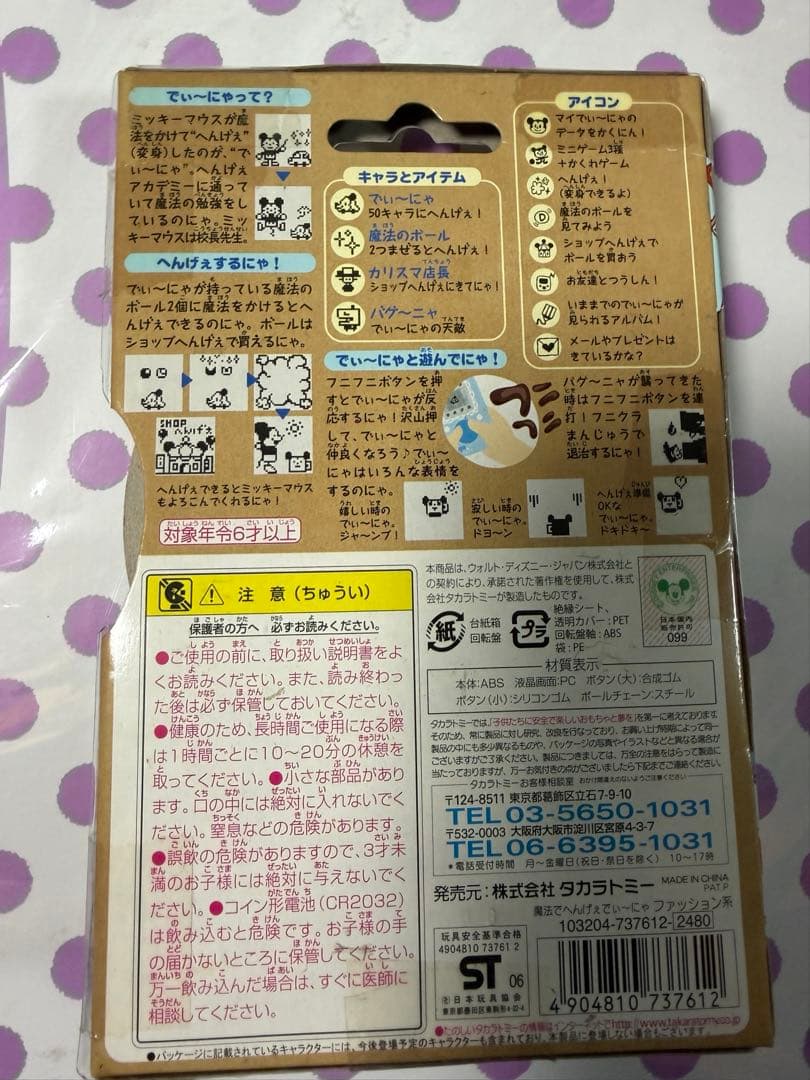 でぃ～にゃって？
ミッキーマウスが魔
法をかけて“へんげぇ”
(変身)したのが、“で
ぃ～にゃ”。へんげぇ
アカデミーに通って
いて魔法の勉強をし
ているのにゃ。ミッ
キーマウスは校長先生。
へんげぇするにゃ！
でぃ～にゃが持っている魔法の
ボール2個に魔法をかけるとへ
んげぇできるのにゃ。ボールは
ショップへんげぇで買えるにゃ。
SHOP
へんげぇ
へんげぇできるとミッキーマウス
もよろこんでくれるにゃ！
対象年令6才以上
キャラとアイテム
でぃ～にゃ
50キャラにへんげぇ！
魔法のボール
2つまぜるとへんげぇ！
カリスマ店長
ショップへんげぇにきてにゃ！
バグ～ニャ
でぃ～にゃの天敵
アイコン
マイでぃ～にゃの
データをかくにん！
ミニゲーム3種
＋かくれゲーム
へんげぇ！
(変身できるよ)
魔法のボールを
見てみよう
ショップへんげぇで
ボールを買おう
お友達とつうしん！
いままでのでぃ～にゃが
見られるアルバム！
メールやプレゼントは
きているかな？
でぃ～にゃと遊んでにゃ！
フニフニボタンを押
すとでぃ～にゃが反
応するにゃ！沢山押
して、でぃ～にゃと
仲良くなろう♪でぃ～
にゃはいろんな表情を
するのにゃ。
バグ～ニャが襲ってきた
時はフニフニボタンを連
打！フニクラ
まんじゅうで
退治するにゃ！
嬉しい時の
でぃ～にゃ。
ジャ～ンプ！
寂しい時の
でぃ～にゃ。
ドヨ～ン
へんげぇ準備
OKな
でぃ～にゃ。
ドキドキ～
注意(ちゅうい)
保護者の方へ 必ずお読みください。
●ご使用の前に、取り扱い説明書をよ
くお読みください。また、読み終わっ
た後は必ず保管しておいてください。
●健康のため、長時間ご使用になる際
は1時間ごとに10～20分の休憩を
取ってください。●小さな部品があり
ます。口の中には絶対に入れないでく
ださい。窒息などの危険があります。
●誤飲の危険がありますので、3才未
満のお子様には絶対に与えないでく
ださい。●コイン形電池(CR2032)
は飲み込むと危険です。お子様の手
の届かないところに保管してください。
万一飲み込んだ場合は、すぐに医師に
相談してください。
本商品は、ウォルト・ディズニー・ジャパン株式会社と
の契約により、承諾された著作権を使用して、株式
会社タカラトミーが製造したものです。
日本国内
販売許可
099
紙
台紙箱
回転盤
プラ
絶縁シート、
透明カバー：PET
回転盤軸：ABS
袋：PE
材質表示
本体：ABS 液晶画面：PC ボタン(大)：合成ゴム
ボタン(小)：シリコンゴム ボールチェーン：スチール
タカラトミーでは、「子供たちに安全で楽しいおもちゃと夢を」を第一に考えております。
そのため、常に製品に対し研究、改良を行なっており、お買い上げ時期によって同一
製品の中にも多少異なるものや、パッケージの写真やイラストなどと異なる場合が
ございますがご了承ください。製品につきましては、万全の注意をはらって製造に
当たっておりますが、万一お気付きの点がございましたら下記までご連絡ください。
タカラトミーお客様相談室 おかけ間違えのないようご注意ください
〒124-8511 東京都葛飾区立石7-9-10
TEL 03-5650-1031
〒532-0003 大阪府大阪市淀川区宮原4-3-7
TEL 06-6395-1031
＊電話受付時間 月～金曜日(祝日・祭日を除く) 10～17時
発売元：株式会社 タカラトミー
MADE IN CHINA
PAT. P
魔法でへんげぇでぃ～にゃ ファッション系
103204-737612-2480
玩具安全基準合格
4904810 73761 2
ST 06
日本玩具協会
東京都墨田区東駒形4-22-4
4 904810 737612
●たのしいタカラトミーの情報はインターネットでhttp://www.takaratomy.co.jp
＊パッケージに記載されているキャラクターには、今後登場予定のキャラクターも含まれており、本製品に登場しない場合もございます。